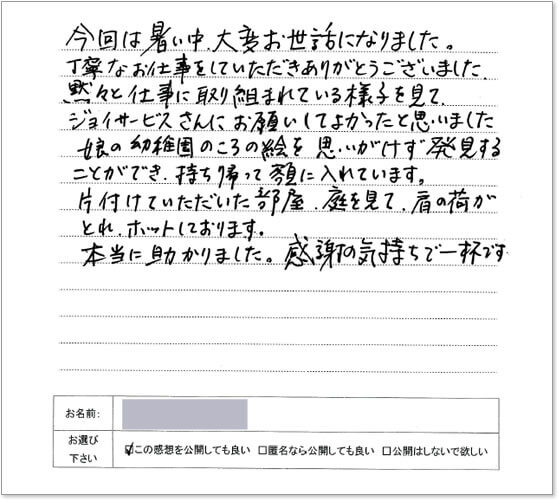 今回は暑い中、大変お世話になりました。
丁寧なお仕事をしていただきありがとうございました。
黙々と仕事に取り組まれている様子を見て、
ジョイサービスさんにお願いしてよかったと思いました
娘の幼稚園のころの絵を思いがけず発見する
ことができ、持ち帰って額に入れています。
片付けていただいた部屋、庭を見て、肩の荷が
とれ、ホットしております。
本当に助かりました。感謝の気持ちで一杯です
お名前:
お選び下さい
☑この感想を公開しても良い □匿名なら公開しても良い □公開はしないで欲しい